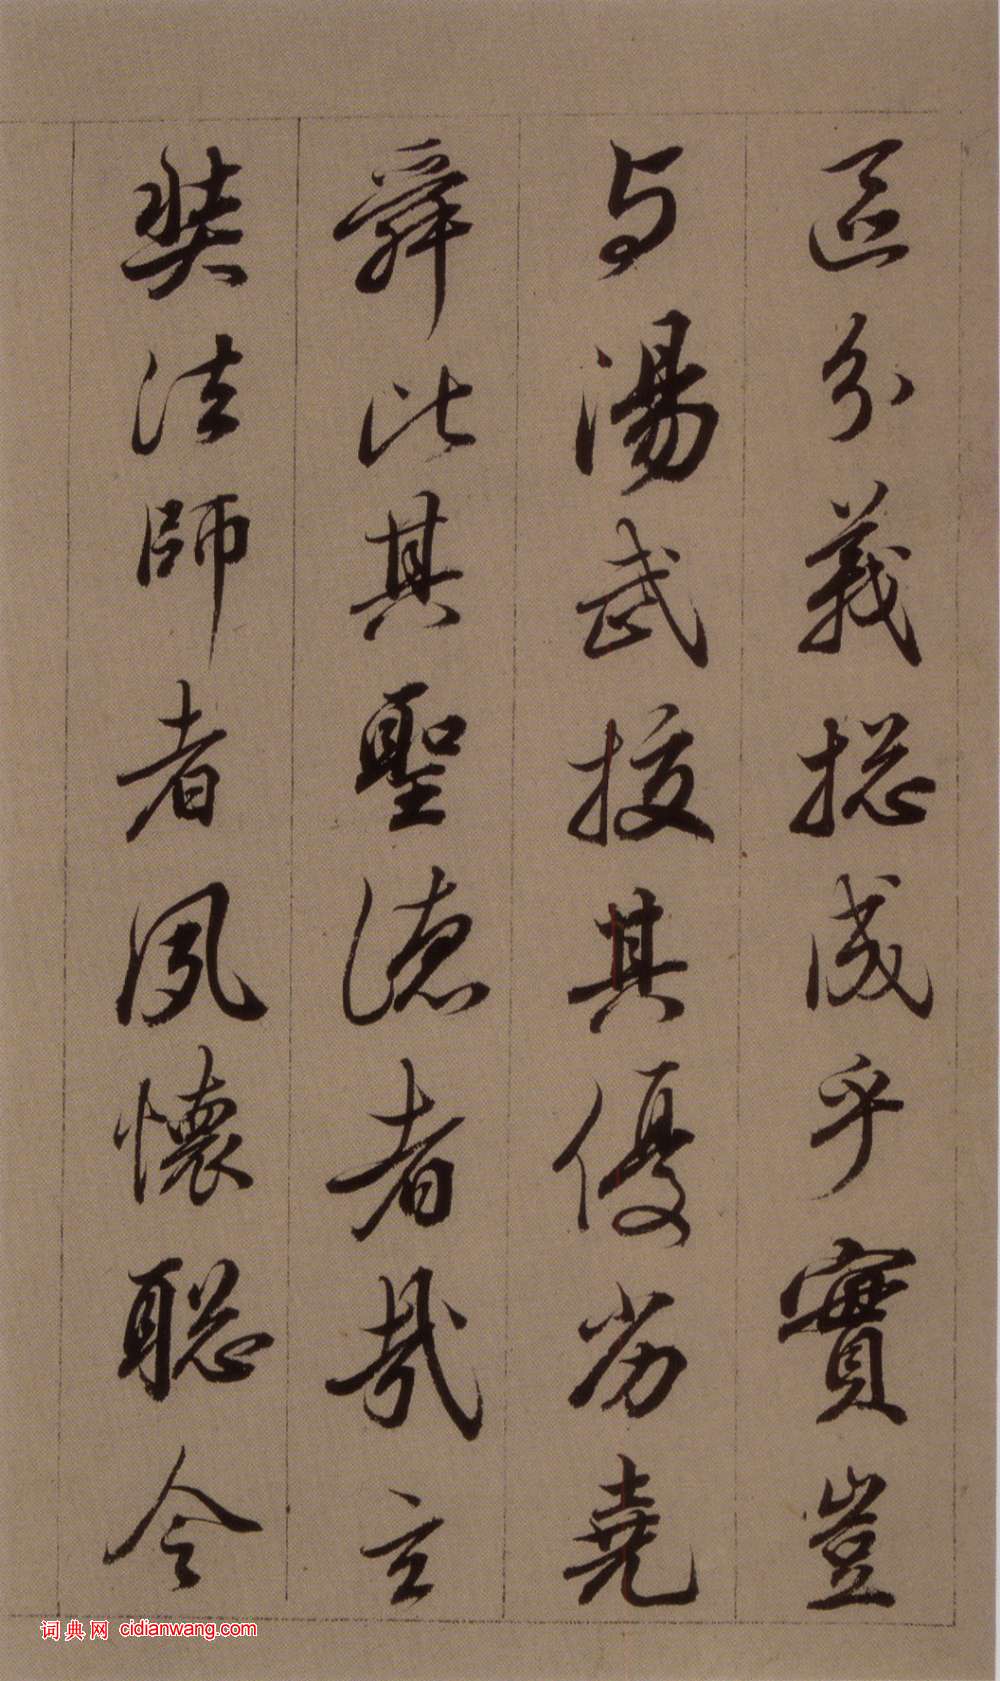 區分義揔成乎實豈
与湯武挍其優劣堯
舜比其聖德者哉玄
奘法師者夙懷聡令
词典网 cidianwang.com